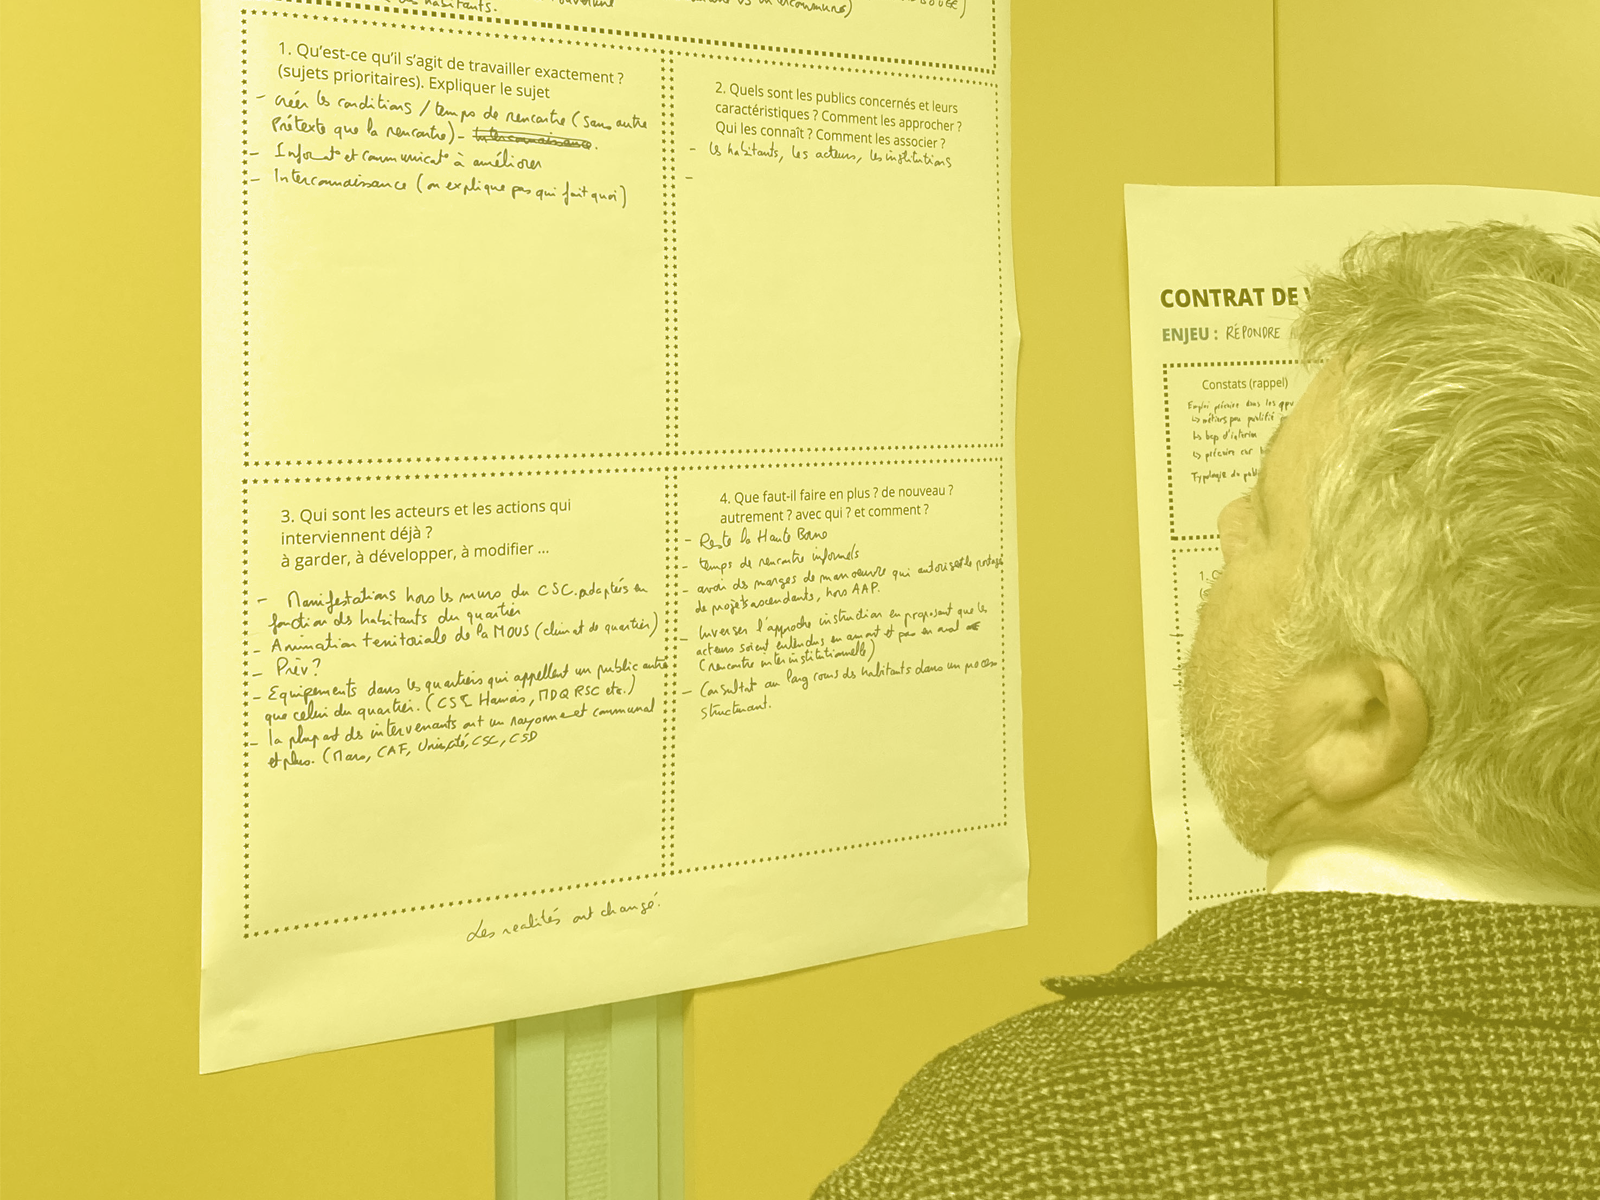 habitants.
1. Qu'est-ce qu'il s'agit de travailler exactement ?
(sujets prioritaires). Expliquer le sujet
- créer les conditions / temps de rencontre (sans autre
prétexte que la rencontre) -
- Informat° et communicat° à améliorer
- Interconnaissance (on explique pas qui fait quoi)
2. Quels sont les publics concernés et leurs
caractéristiques ? Comment les approcher ?
Qui les connaît ? Comment les associer ?
- les habitants, les acteurs, les institutions
-
3. Qui sont les acteurs et les actions qui
interviennent déjà ?
à garder, à développer, à modifier ...
- Manifestations hors les murs du CSC. adaptées en
fonction des habitants du quartier
- Animation territoriale de la MOUS (climat de quartier)
- Prév ?
- Equipements dans les quartiers qui appellent un public autre
que celui du quartier. (CSI, MDQ RSC etc.)
- la plupart des intervenants ont un rayonnement communal
et plus. (CAF, Université, CSC, CSD
4. Que faut-il faire en plus ? de nouveau ?
autrement ? avec qui ? et comment ?
- Reste la Haute Borne
- temps de rencontre informels
- avoir des marges de manoeuvre qui autorisent le portage
de projets ascendants, hors AAP.
- Inverser l'approche instruction en proposant que les
acteurs soient entendus en amont et pas en aval
(rencontre interinstitutionnelle)
- Consultat° au long cours des habitants dans un process
structurant.
Les réalités ont changé.
CONTRAT DE
ENJEU : RÉPONDRE
Constats (rappel)
Emploi précaire dans les
↳ métiers peu qualifié
↳ bcp d'intérim
↳ précaire car
Typologie du
1.